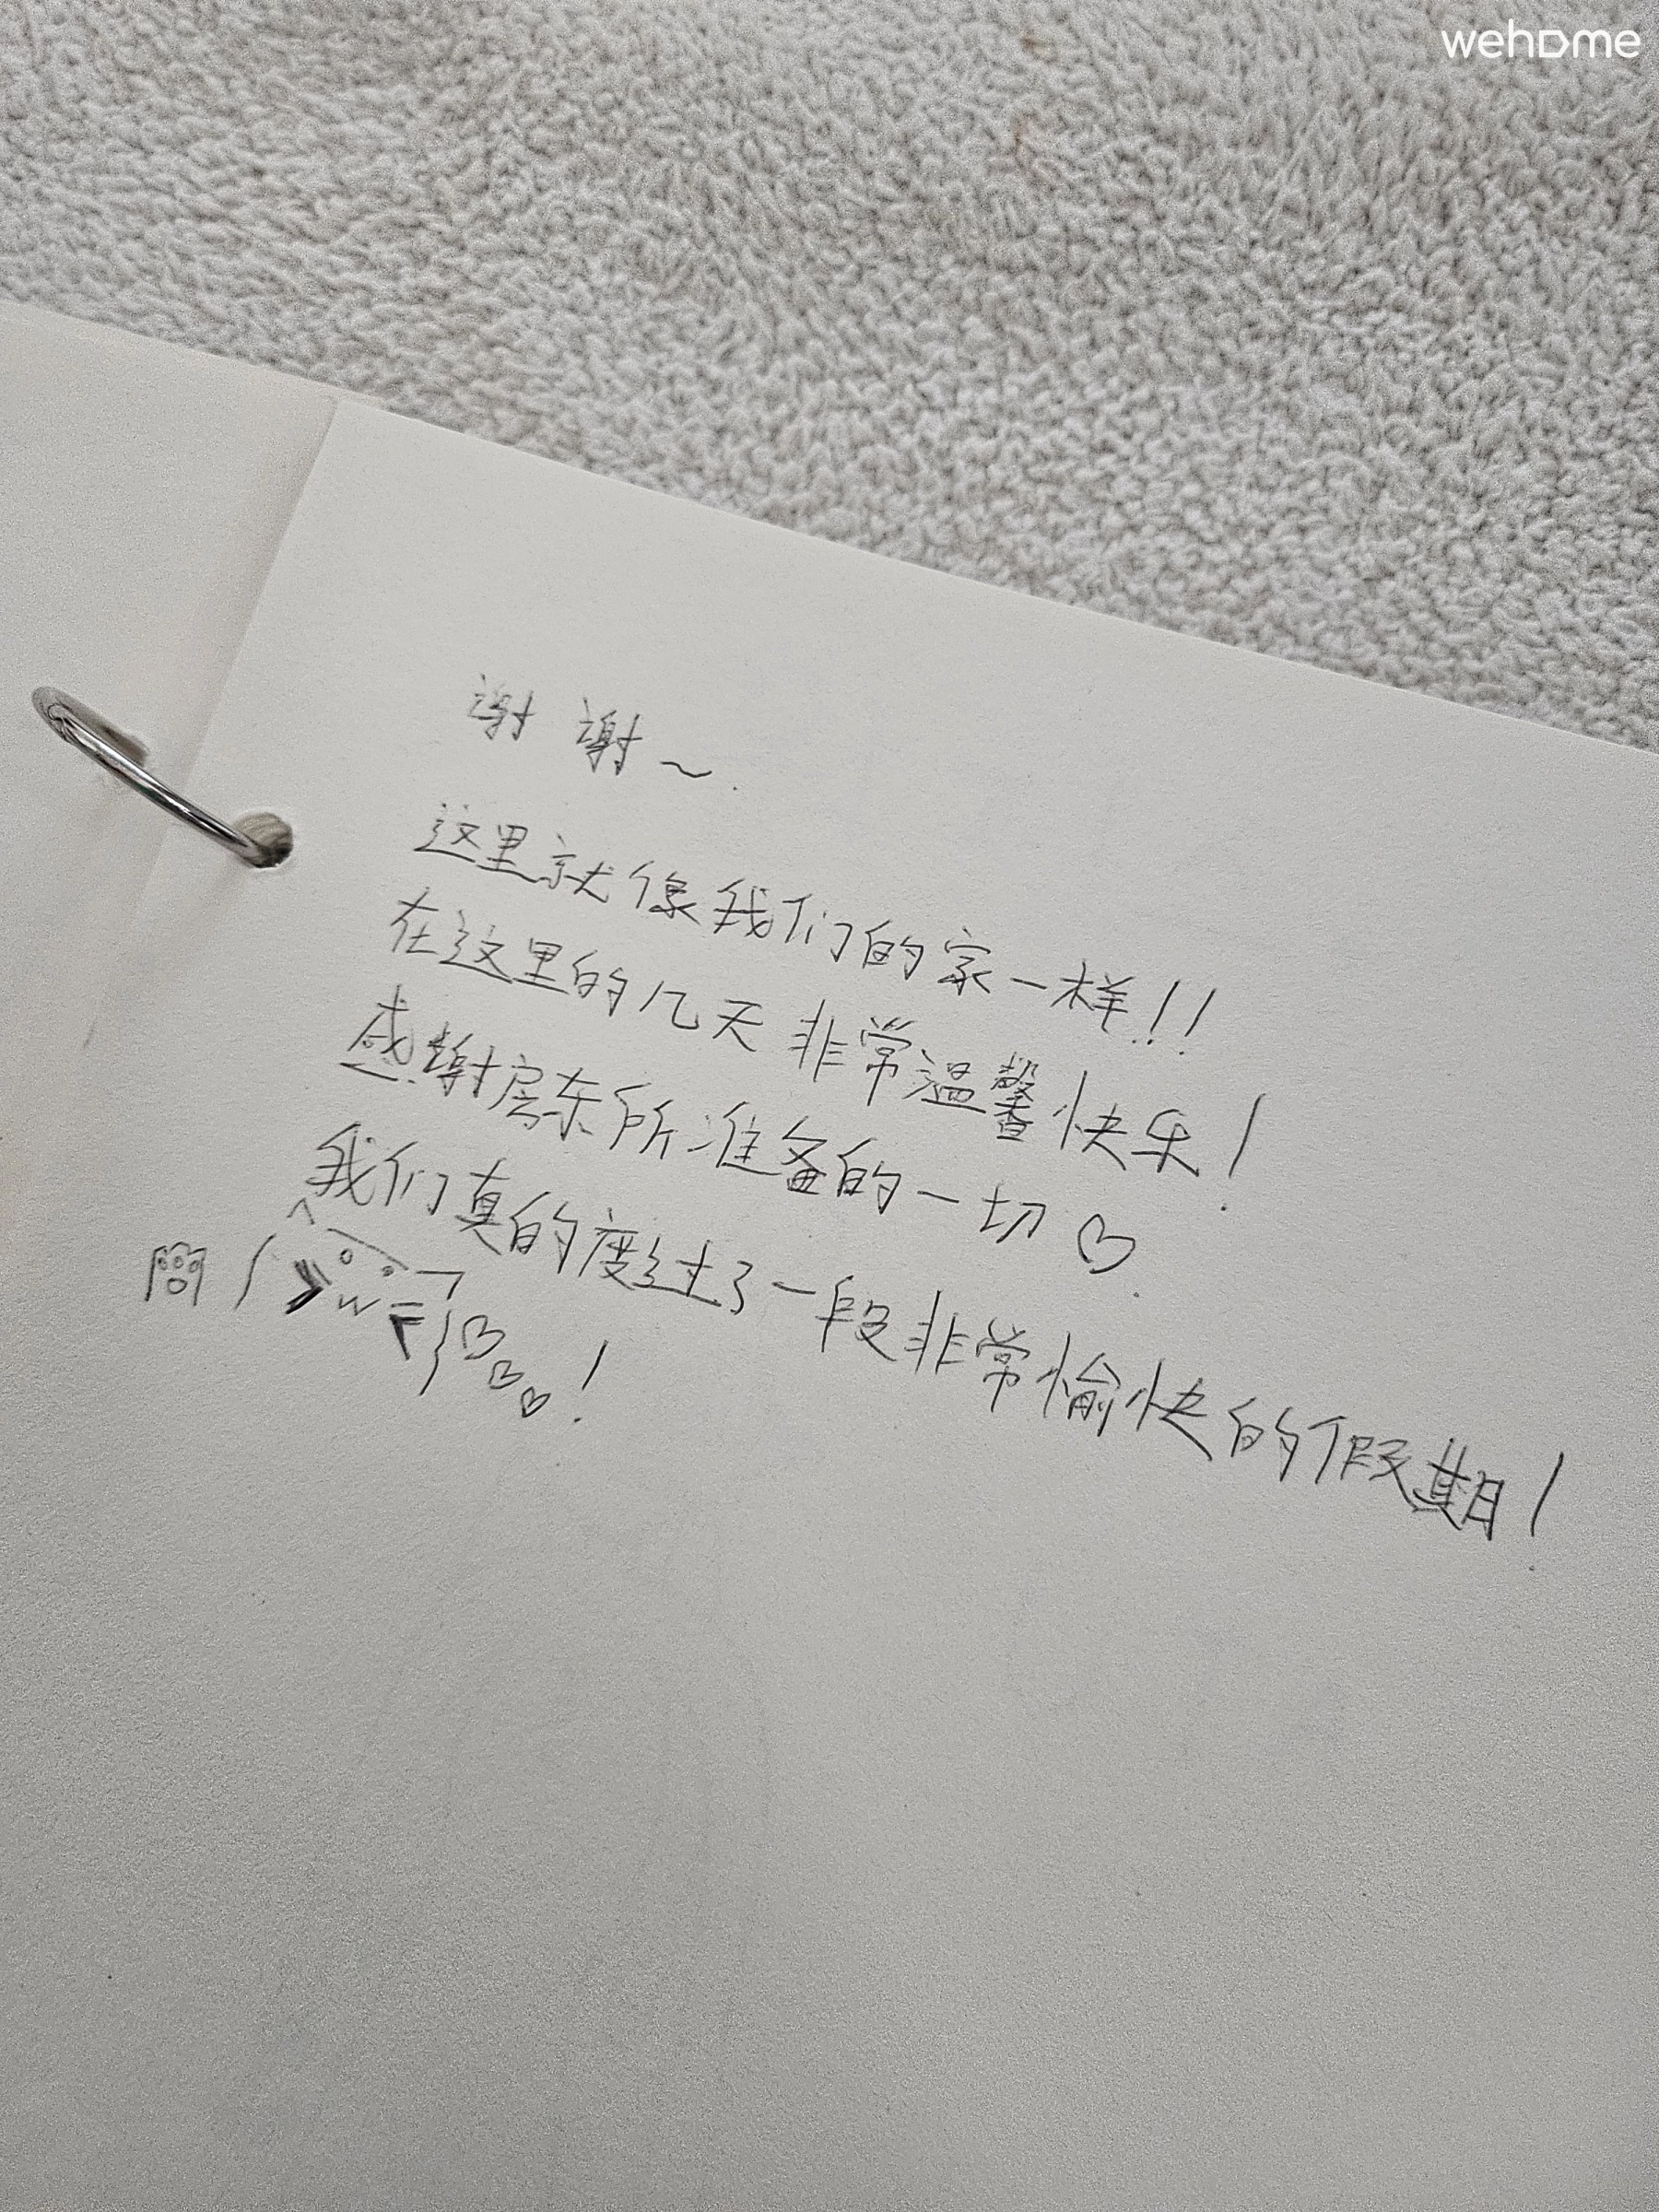 wehome
谢谢～
这里就像我们的家一样!!
在这里的几天非常温馨快乐!
感谢房东所准备的一切♡
我们真的度过了一段非常愉快的假期!